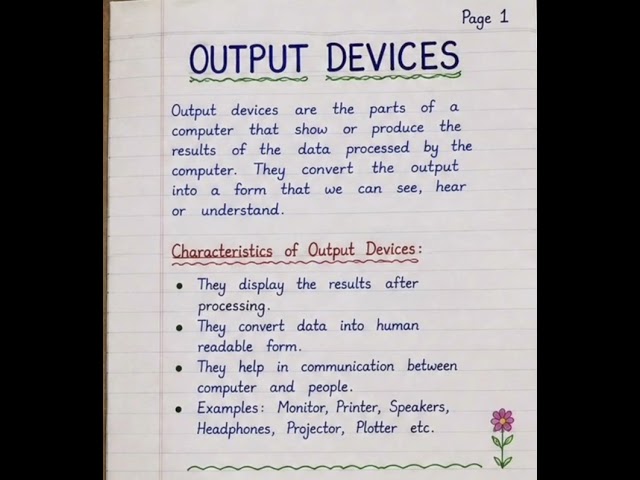 Page 1
OUTPUT DEVICES
Output devices are the parts of a
computer that show or produce the
results of the data processed by the
computer. They convert the output
into a form that we can see, hear
or understand.
Characteristics of Output Devices:
• They display the results after
processing.
• They convert data into human
readable form.
• They help in communication between
computer and people.
• Examples: Monitor, Printer, Speakers,
Headphones, Projector, Plotter etc.